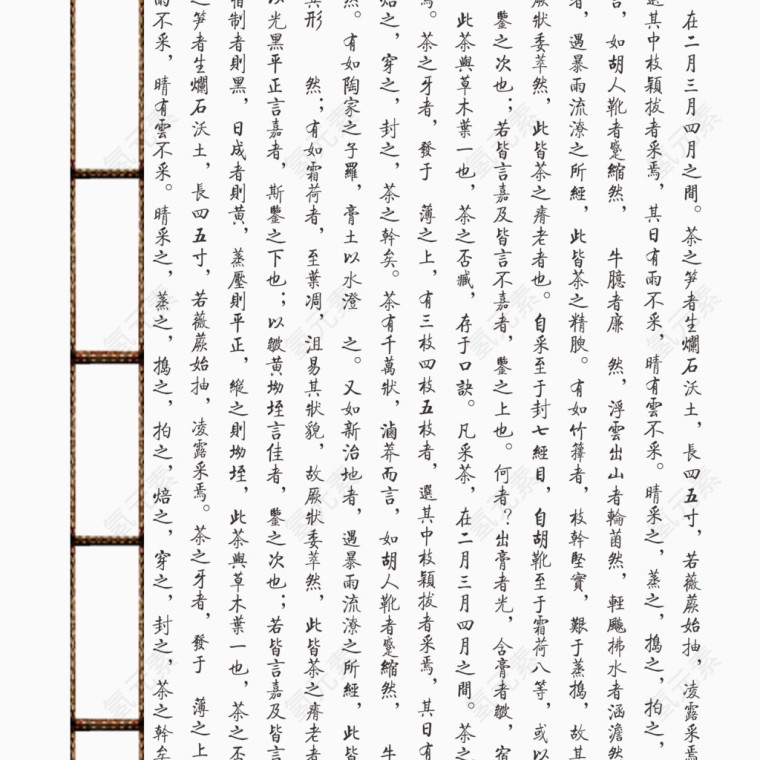 在二月三月四月之間。茶之笋者生爛石沃土，長四五寸，若薇蕨始抽，凌露采焉
選其中枝穎拔者采焉，其日有雨不采，晴有雲不采。晴采之，蒸之，搗之，拍之，
言，如胡人靴者蹙縮然， 牛臆者廉 然，浮雲出山者輪菌然，輕飈拂水者涵澹然
者，遇暴雨流潦之所經，此皆茶之精腴。有如竹籜者，枝幹堅實，艱于蒸搗，故其
厥狀委萃然，此皆茶之瘠老者也。自采至于封七經目，自胡靴至于霜荷八等，或以
鑒之次也；若皆言嘉及皆言不嘉者，鑒之上也。何者？出膏者光，含膏者皺，宿
此茶與草木葉一也，茶之否臧，存于口訣。凡采茶，在二月三月四月之間。茶之
焉。茶之牙者，發于 薄之上，有三枝四枝五枝者，選其中枝穎拔者采焉，其日有
焙之，穿之，封之，茶之幹矣。茶有千萬狀，滷莽而言，如胡人靴者蹙縮然， 牛
然。有如陶家之子羅，膏土以水澄 之。又如新治地者，遇暴雨流潦之所經，此皆
其形 然；有如霜荷者，至葉凋，沮易其狀貌，故厥狀委萃然，此皆茶之瘠老者
以光黑平正言嘉者，斯鑒之下也；以皺黃坳垤言佳者，鑒之次也；若皆言嘉及皆言
宿制者則黑，日成者則黃，蒸壓則平正，縱之則坳垤，此茶與草木葉一也，茶之否
之笋者生爛石沃土，長四五寸，若薇蕨始抽，凌露采焉。茶之牙者，發于 薄之上
雨不采，晴有雲不采。晴采之，蒸之，搗之，拍之，焙之，穿之，封之，茶之幹矣
氫元素